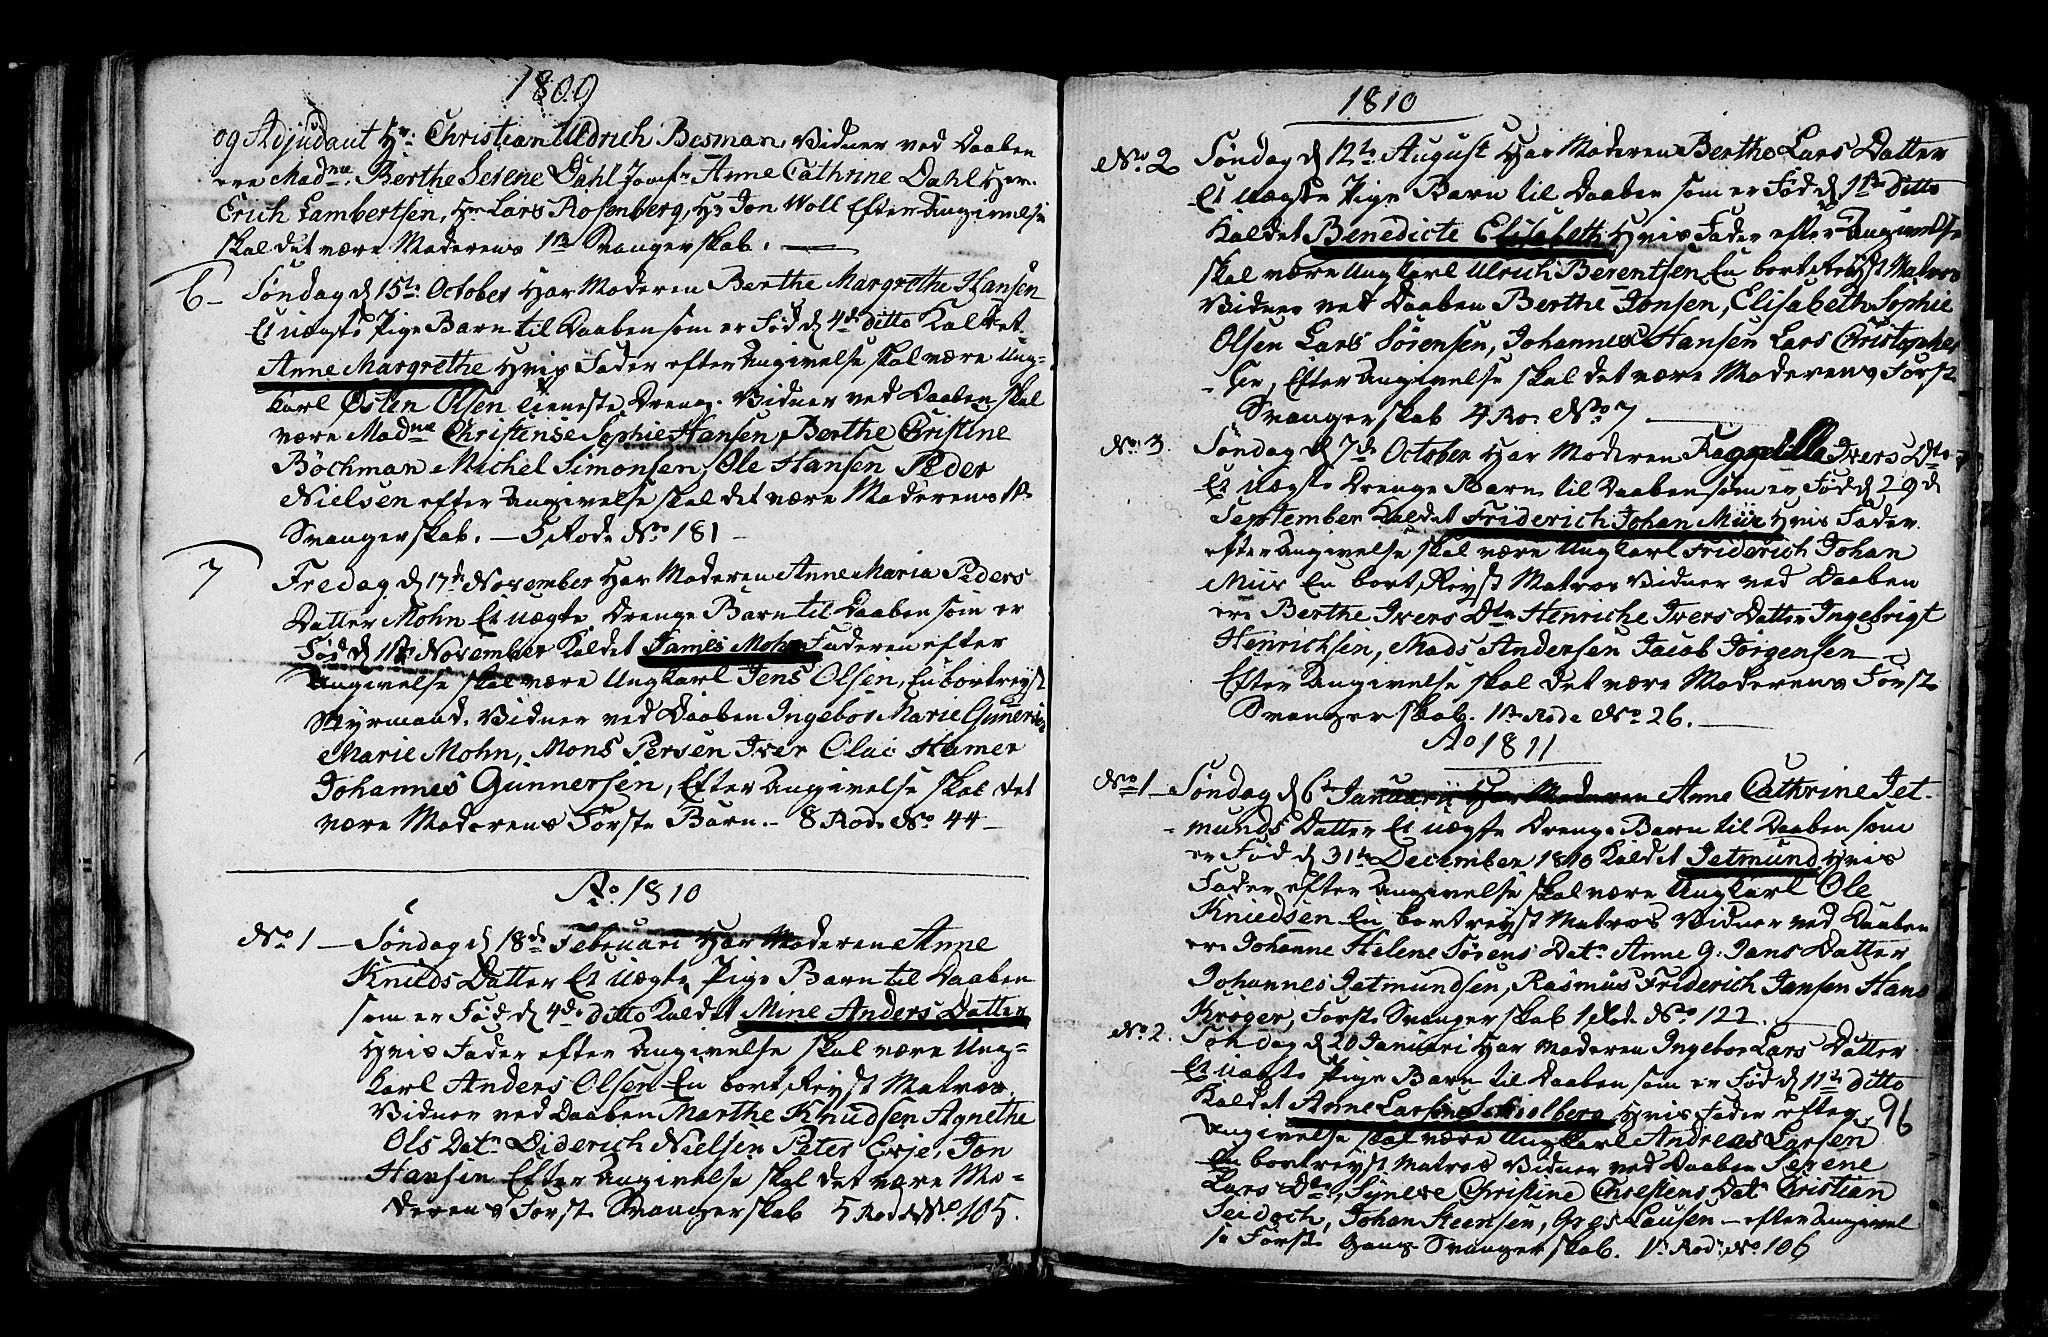 1809
og Adjudant Hr: Christian Uldrich Besman, Vidner ved Daaben
ere Madme. Berthe Serene Dahl Jomfr Anne Cathrine Dahl Her.
Erich Lambertsen, Hr Lars Rosenberg, Hr Jon Woll Efter Angivelse
skal det være Moderens 1te Svangerskab.
6 - Søndag d 15te October Har Moderen Berthe Margrethe Hansen
Et uægte Pige Barn til Daaben som er Fød d 4de ditto Kaldet
Anne Margrethe Hvis Fader efter Angivelse skal være Ung-
karl Østen Olsen tieneste Dreng. Vidner ved Daaben skal
være Madme Christense Sophie Hansen, Berthe Cristine
Böchman Michel Simonsen, Ole Hansen Peder
Nielsen efter Angivelse skal det være Moderens 1te
Svangerskab. - 5 Rode No 181 -
7 Fredag d 17de November Har Moderen Anne Maria Peders
Datter Mohn Et uægte Drenge Barn til Daaben som er
Fød d 1te November Kaldet James Mohn Faderen efter
Angivelse skal være Ungkarl Jens Olsen, En bortreyst
Styrmand. Vidner ved Daaben Ingebor Marie
Marie Mohn, Mons Persen Iver Olai Hamer
Johannes Gunnersen, Efter Angivelse skal det
være Moderens Første Barn. - 8 Rode No 44 -
Ao 1810
No 1 - Søndag d 18de Februari Har Moderen Anne
Knuds Datter Et uægte Pige Barn til Daaben
som er Fød d 4de ditto Kaldet Mine Anders Datter
Hvis Fader efter Angivelse skal være Ung-
karl Anders Olsen En bort Reyst Matros
Vidner ved Daaben Marthe Knudsen Agnethe
Ols Datr Diderich Nielsen Peter Erje, Jon
Hansen Efter Angivelse skal det være Mo-
derens Første Svangerskab 5 Rode No 105.
1810
No. 2 Søndag d 12te August Har Moderen Berthe Lars Datter
Et uægte Pige Barn til Daaben som er Fød d 1te ditto
Kaldet Benedicte Elisabeth Hvis Fader efter Angivelse
skal være Ungkarl Ulrich Berentsen En bort Reyst Matros
Vidner ved Daaben Berthe Jonsen, Elisabeth Sophie
Olsen Lars Sörensen, Johannes Hansen Lars Christophe
- Efter Angivelse skal det være Moderens Først
Svangerskab 4 Ro. No 7
No. 3. Søndag d 7de October Har Moderen Raggelille Ivers Dtr
Et uægte Drenge Barn til Daaben som er Fød d 29d
September Kaldet Friderich Johan Miir Hvis Fader
efter Angivelse skal være Ungkarl Friderich Johan
Miir En bort Reyst Matros Vidner ved Daaben
ere Berthe Ivers Dtr Henriche Ivers Datter Ingebrigt
Henrichsen, Mads Andersen Jacob Jörgensen
Efter Angivelse skal det være Moderens Först
Svangerskab. 1te Rode No 26.
Ao 1811
No 1 - Søndag d 6te Januarii Har Moderen Anne Cathrine Jet-
- munds Datter Et uægte Drenge Barn til Daaben som
er Fød d 31te December 1810 Kaldet Jetmund Hvis
Fader efter Angivelse skal være Ungkarl Ole
Knudsen En bortreyst Matros Vidner ved Daaben
er Johanne Helene Sørens Datr Anne G: Jans Datter
Johannes Jetmundsen, Rasmus Friderich Jansen Hans
Kröger, Første Svangerskab 1 Rode No 122.
No. 2. Søndag d 20 Januari Har Moderen Ingebor Lars Datter
Et uægte Pige Barn til Daaben som er Fød d 11te ditto
Kaldet Anne Larsen Schiolberg Hvis Fader efter 96
Angivelse skal være Ungkarl Andreas Larsen
En bortreyst Matros Vidner ved Daaben Serene
Lars Dtr, Syneve Christine Chrestens Datr Christian
Johan Steensen, Gres Lausen - efter Angivel
se Første Gang Svangerskab. 1: Rode No 106